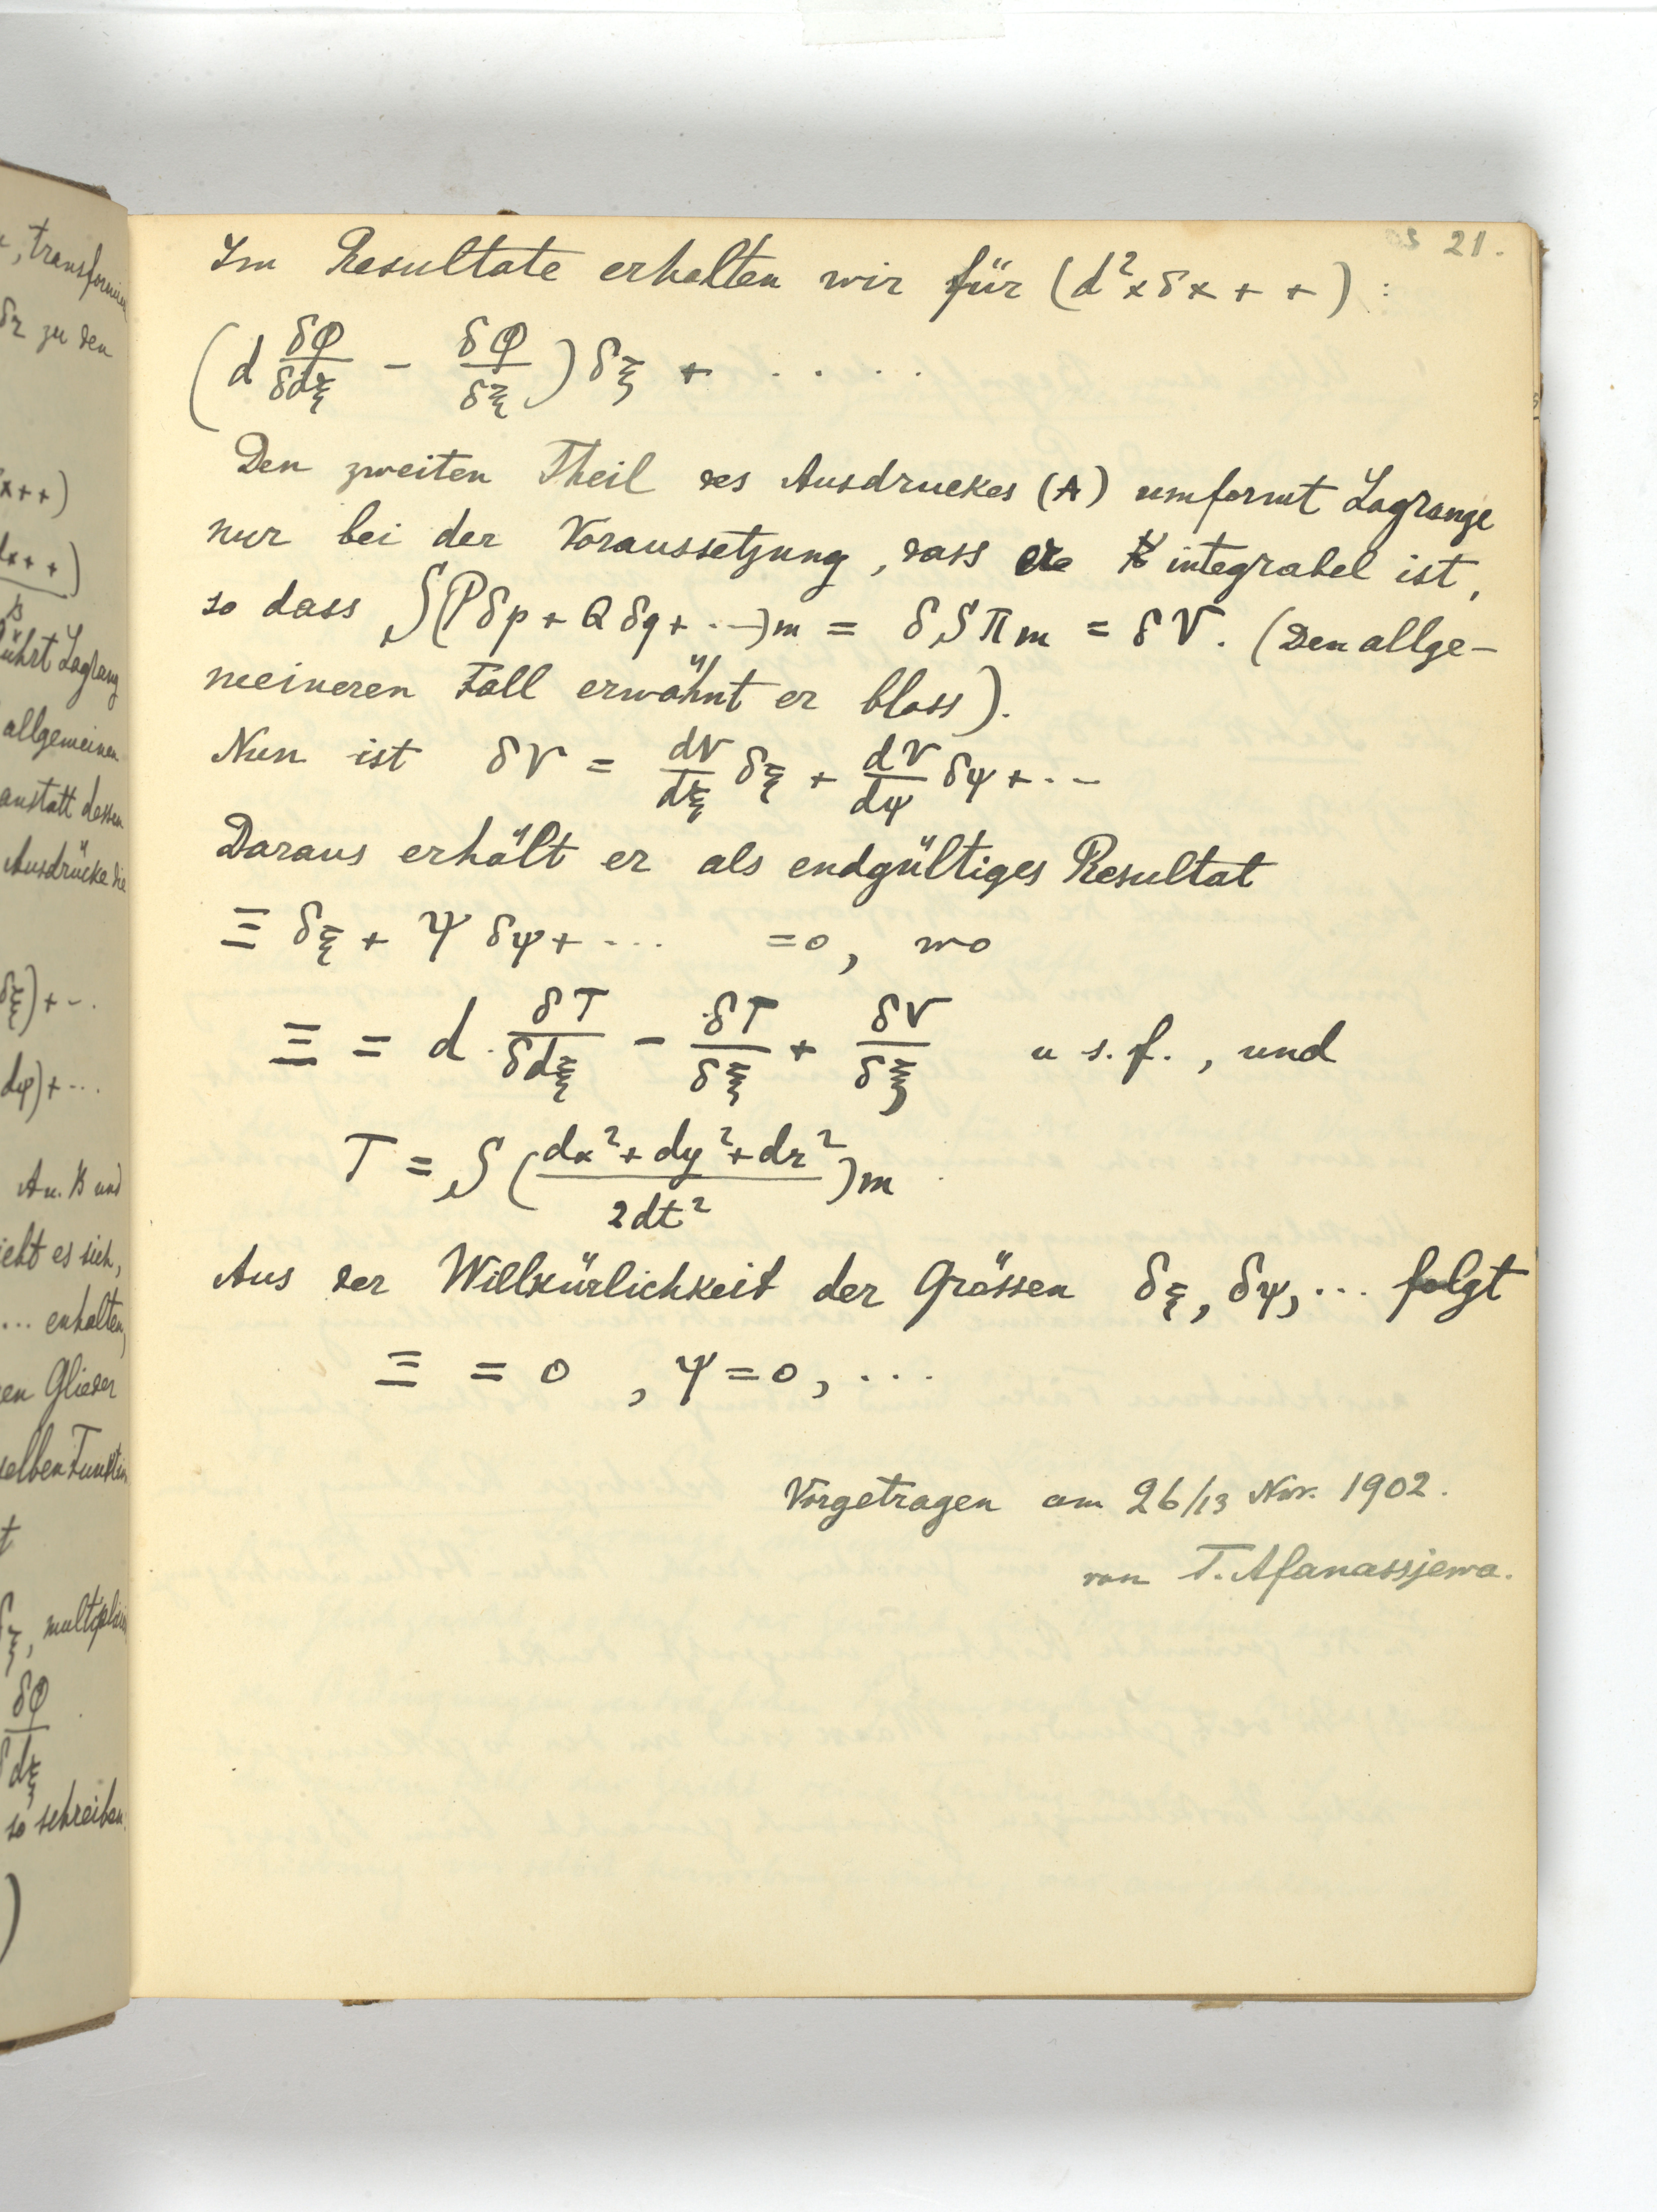 , transformier
δz zu den
x++)
dx++)
B
führt Lagrang
allgemeinen
anstatt dessen
Ausdrücke die
δξ)+-.
dφ)+...
A u. B und
ieht es sich,
... enhalten,
en Glieder
selben Funktion
t
δξ, multiplizi
δΦ
δdξ
so schreiben
)
21.
Im Resultate erhalten wir für (d²xδx + +) :
(d δΦ/δdξ − δΦ/δξ) δξ + . . . .
Den zweiten Theil des Ausdruckes (A) umformt Lagrange
nur bei der Voraussetzung, dass er integrabel ist,
so dass ∫(Pδp + Qδq + ..−)m = δ∫Πm = δV. (Den allge-
meineren Fall erwähnt er bloss).
Nun ist δV = dV/dξ δξ + dV/dψ δψ + . . −
Daraus erhält er als endgültiges Resultat
Ξ δξ + Ψ δψ + ... =0, wo
Ξ = d. δT/δdξ − δT/δξ + δV/δξ u s. f. , und
T = ∫ (dx² + dy² + dz²/2dt²)m
Aus der Willkürlichkeit der Grössen δξ, δψ, ... folgt
Ξ = 0 , Ψ=0, ...
Vorgetragen am 26/13 Nov. 1902.
von T. Afanassjewa.